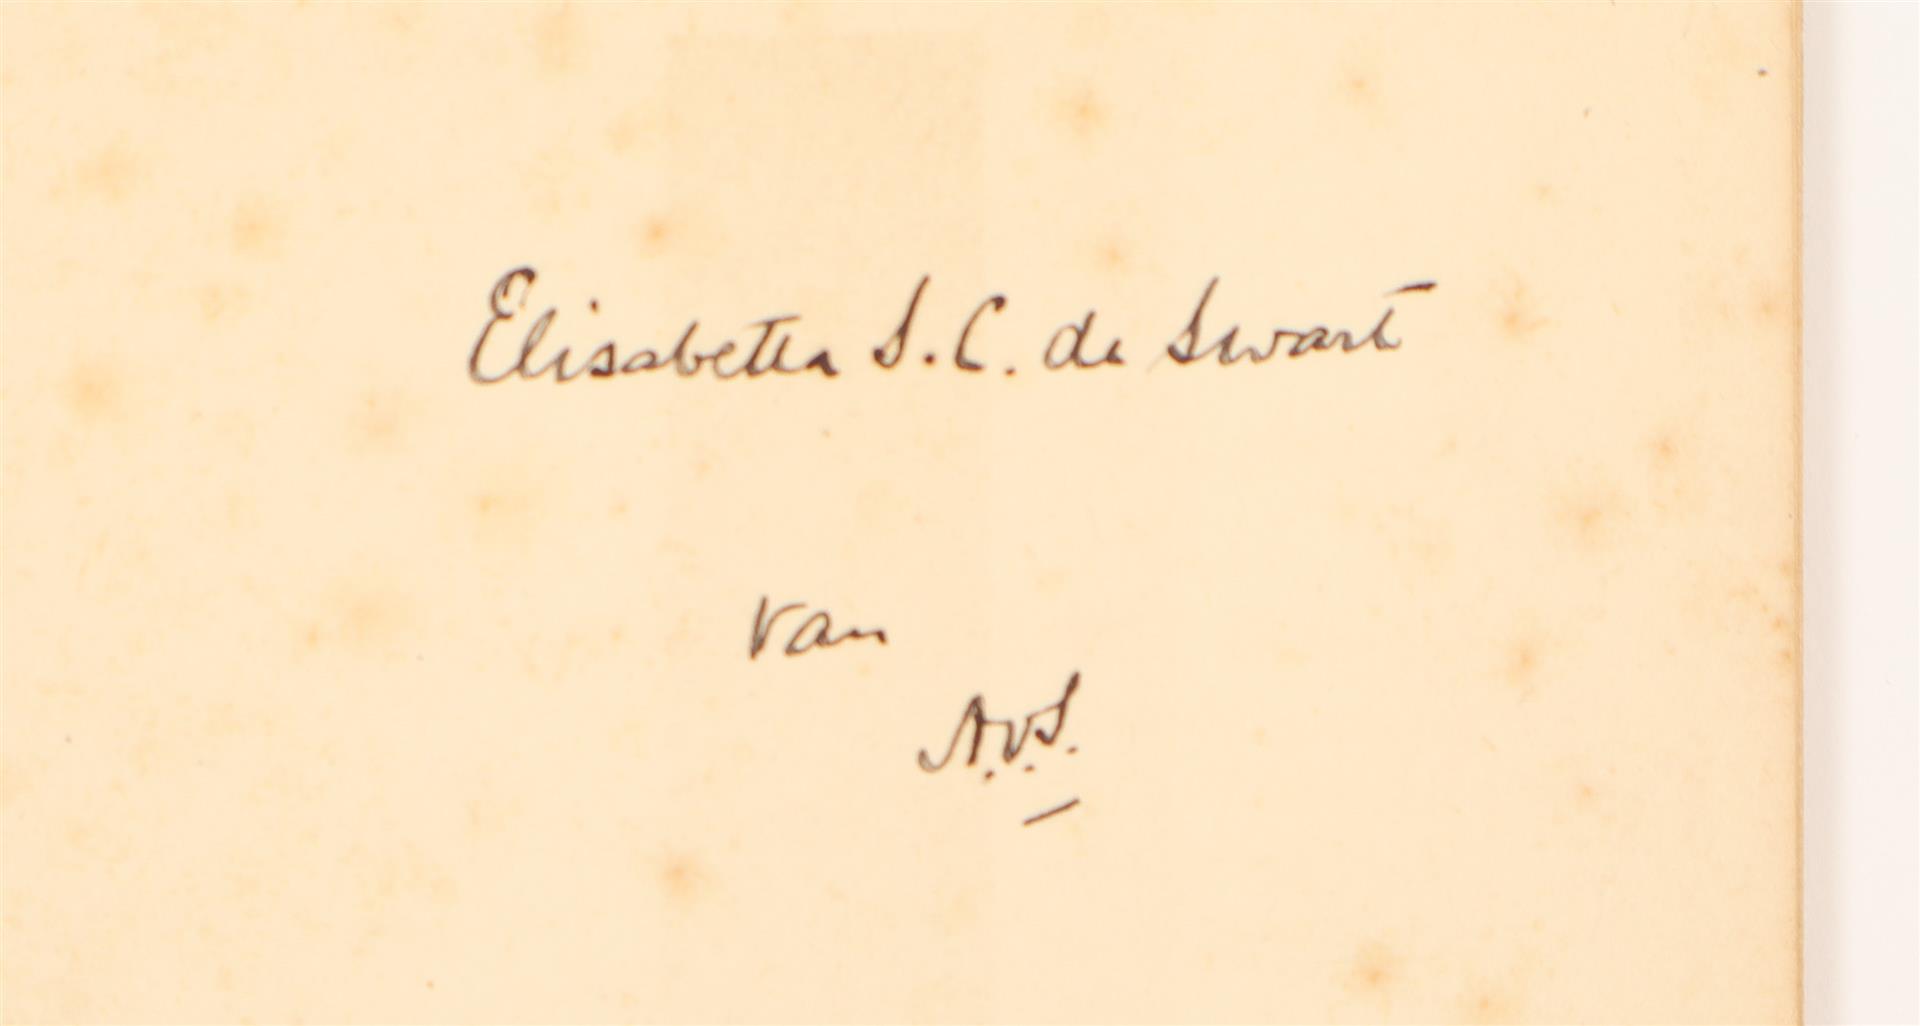 Elisabetta S. C. de Swart
van
A.v.S.